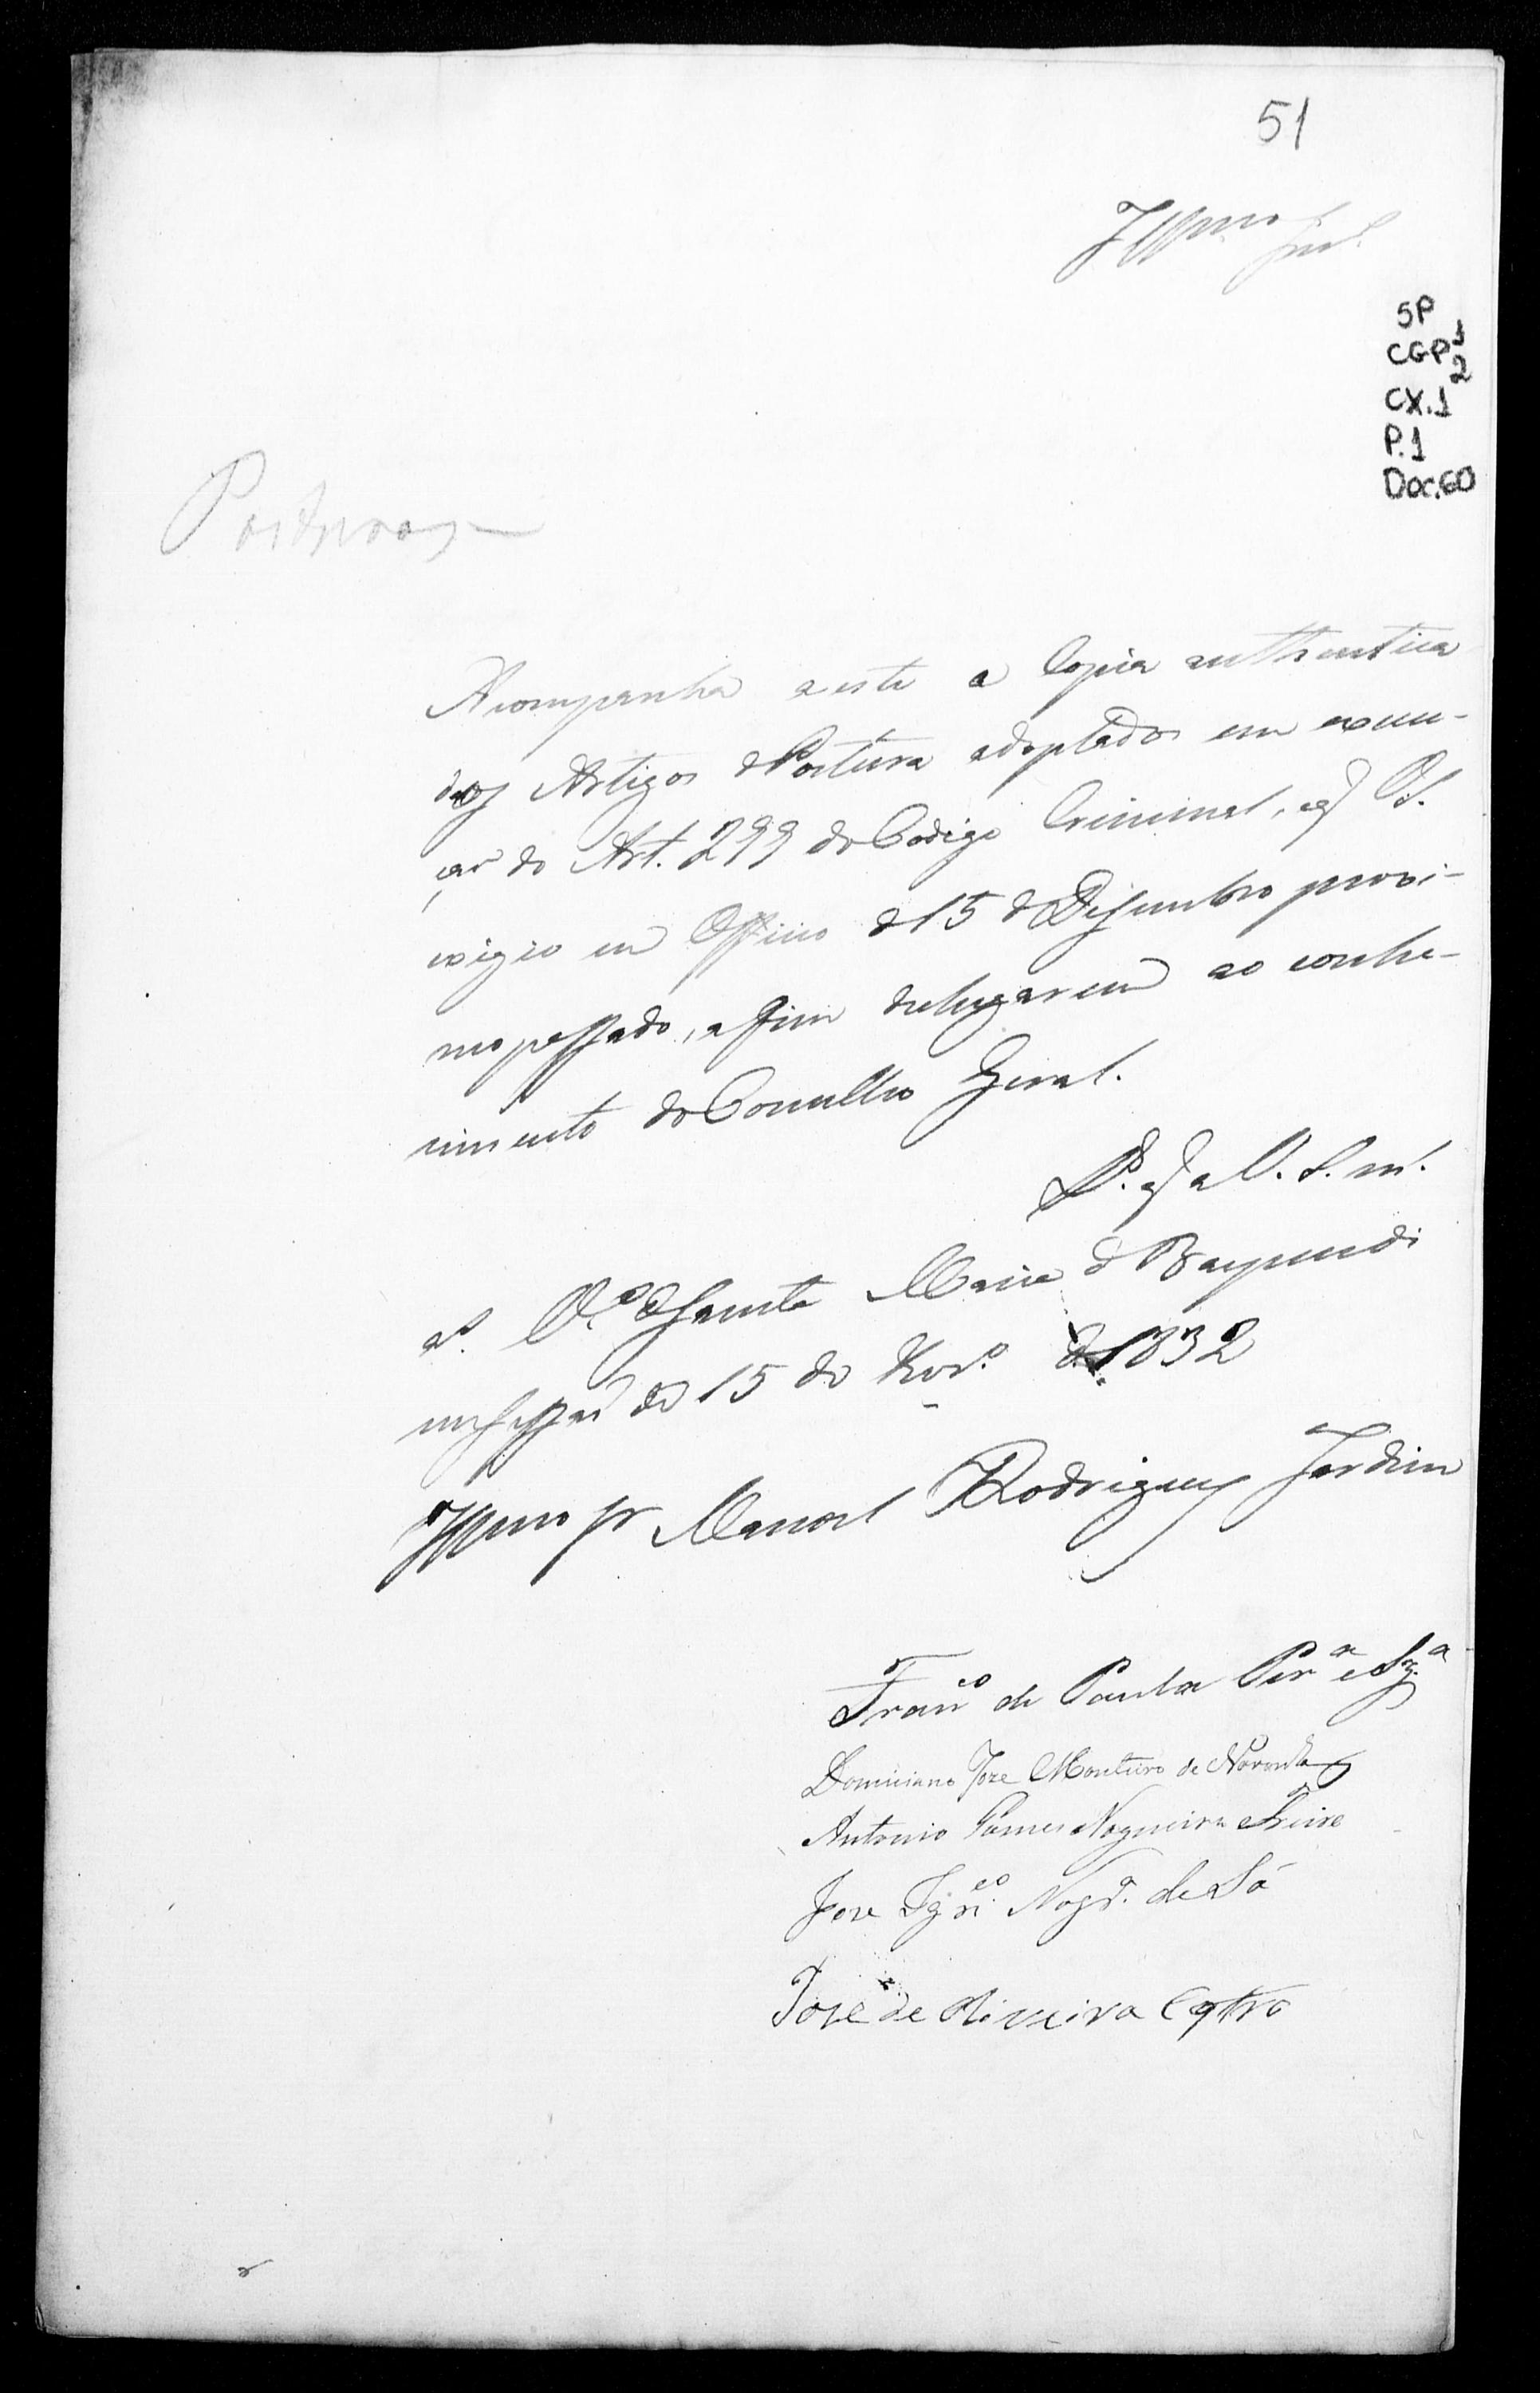 51
Illmo Snr.
SP
CGP 1
2
CX.1
P.1
Doc.60
Posturas
Acompanha a este a Copia authentica
dos Artigos de Postura adoptados em execu-
çaõ do Art. 299 do Codigo Criminal, q̃ V.S.
exigio em Officio de 15 de Dezembro proxi-
mo passado, a fim de chegarem ao conhe-
cimento do Conselho Geral.
D.s g.e a V. S. m.
a.s V.a de Santa Maria de Baependi
em Sessaõ de 15 de Fevr.o de 1832
Illmo Sr Manoel Rodrigues Jardim
Franco de Paula Pera e Sza
Domiciano Joze Monteiro de Noronha
Antonio Gomes Nogueira Freire
Joze Ignco Nogra. de Sá
Joze de Oliveira Castro